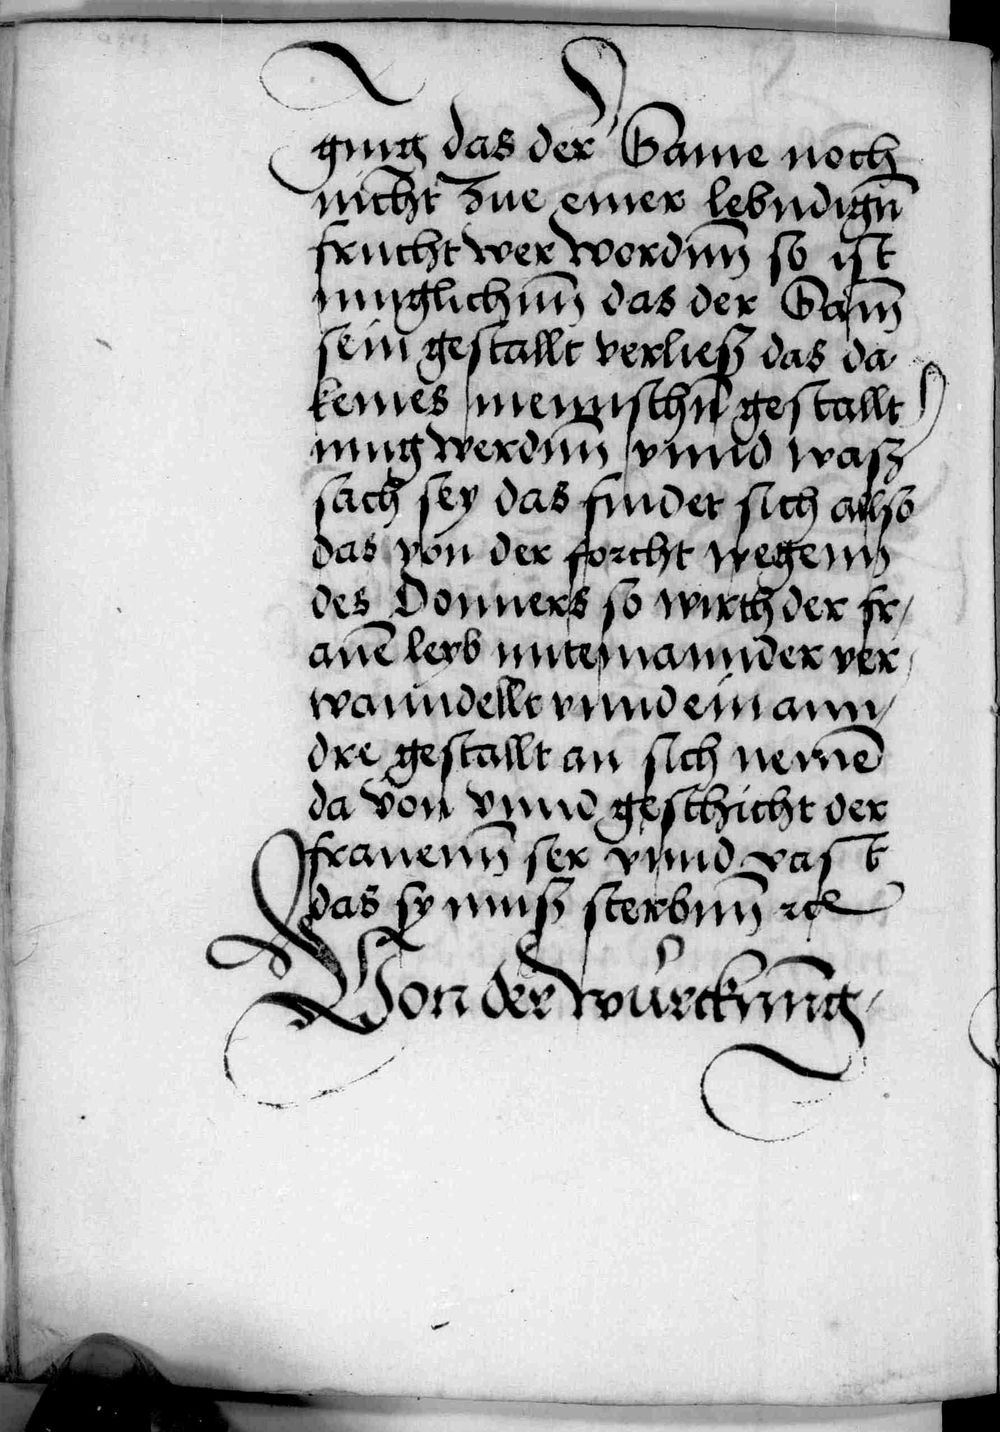 ging das der Same noch
nicht zue einer lebndign̄
frucht wer wordnn̄ so ist
muglichnn̄ das der Sam̄
sein gestallt verliesz das da
keines mennschn̄ gestallt
mug werdnn̄ vnnd wasz
sach sey das findet sich allso
das von der forcht wegenn
des Donners so wirth der fr,
auē leyb mitemannder ver,
wanndellt vnnd ein ann,
dre gestallt an sich nemē
da von vnnd geschicht der
frauenn̄ ser vnnd vast
das sy musz sterbnn̄ ꝛc
Von der würcknn̄g,